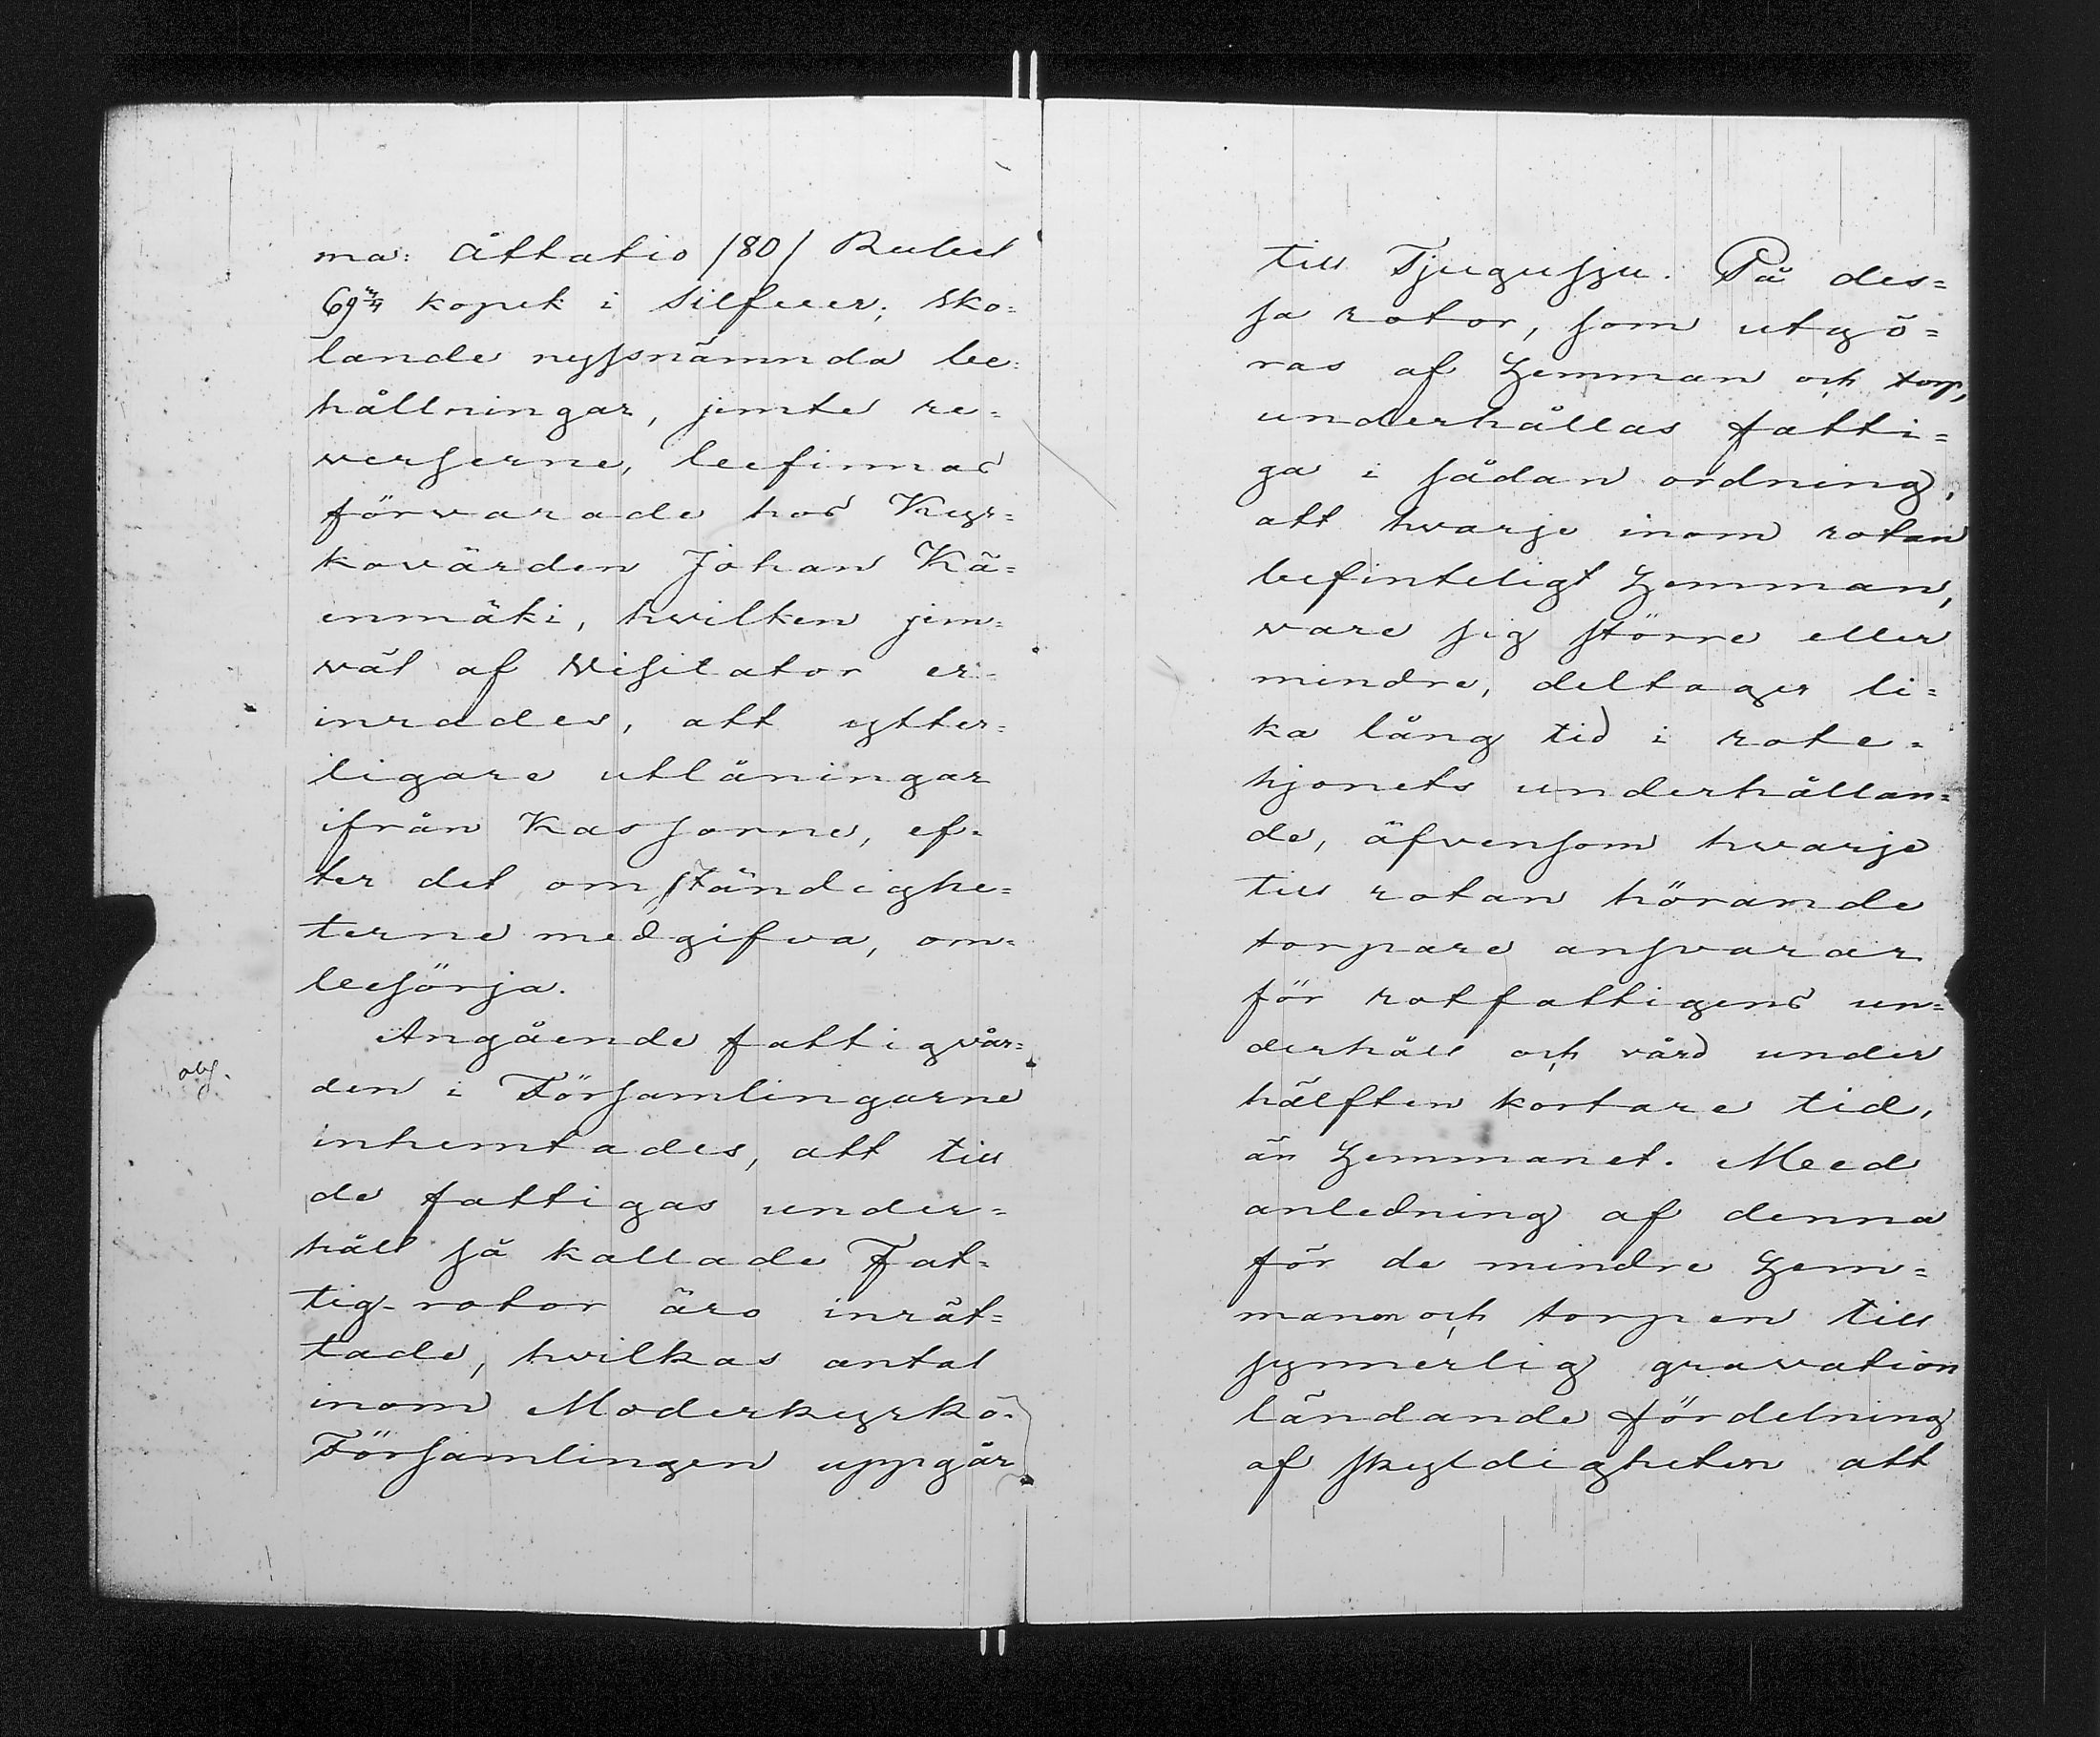 ma: Åttatio /80/ Rubel
69 4/7 kopek i silfver; sko-
lande nyssnämnda be-
hållningar, jemte re-
verserne, befinnas
förvarade hos Kyr-
kovärden Johan Kä-
enmäki, hvilken jem-
väl af Visitator er-
inrades, att ytter-
ligare utlåningar
ifrån Kassorne, ef-
ter det omständighe-
terne medgifva, om-
besörja.
Angående fattigvår-
obs.
den i Församlingarne
inhemtades, att till
de fattigas under-
håll så kallade Fat-
tig-rotor äro inrät-
tade, hvilkas antal
inom Moderkyrko-
Församlingen uppgår
till Tjugusju. På des-
sa rotor, som utgö-
ras af Hemman och torp,
underhållas fatti-
ga i sådan ordning,
att hvarje inom rotan
befinteligt Hemman,
vare sig större eller
mindre, deltager li-
ka lång tid i rote-
hjonets underhållan-
de, äfvensom hvarje
till rotan hörande
torpare ansvarar
för rotfattigens un-
derhåll och vård under
hälften kortare tid,
än Hemmanet. Med
anledning af denna
för de mindre Hem-
manen och torpen till
synnerlig gravation
ländande fördelning
af skyldigheten att